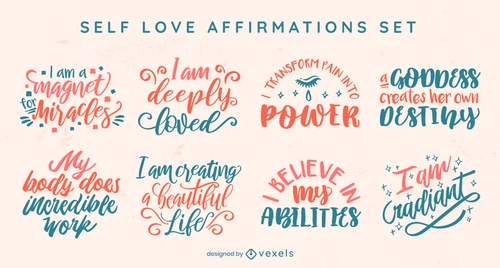 SELF LOVE AFFIRMATIONS SET
I am a
magnet
for
miracles
I am
deeply
loved
I TRANSFORM PAIN INTO
POWER
a GODDESS
creates her own
DESTINY
My
body does
incredible
work
I am creating
a beautiful
Life
I BELIEVE IN
my
ABILITIES
I am
radiant
designed by vexels